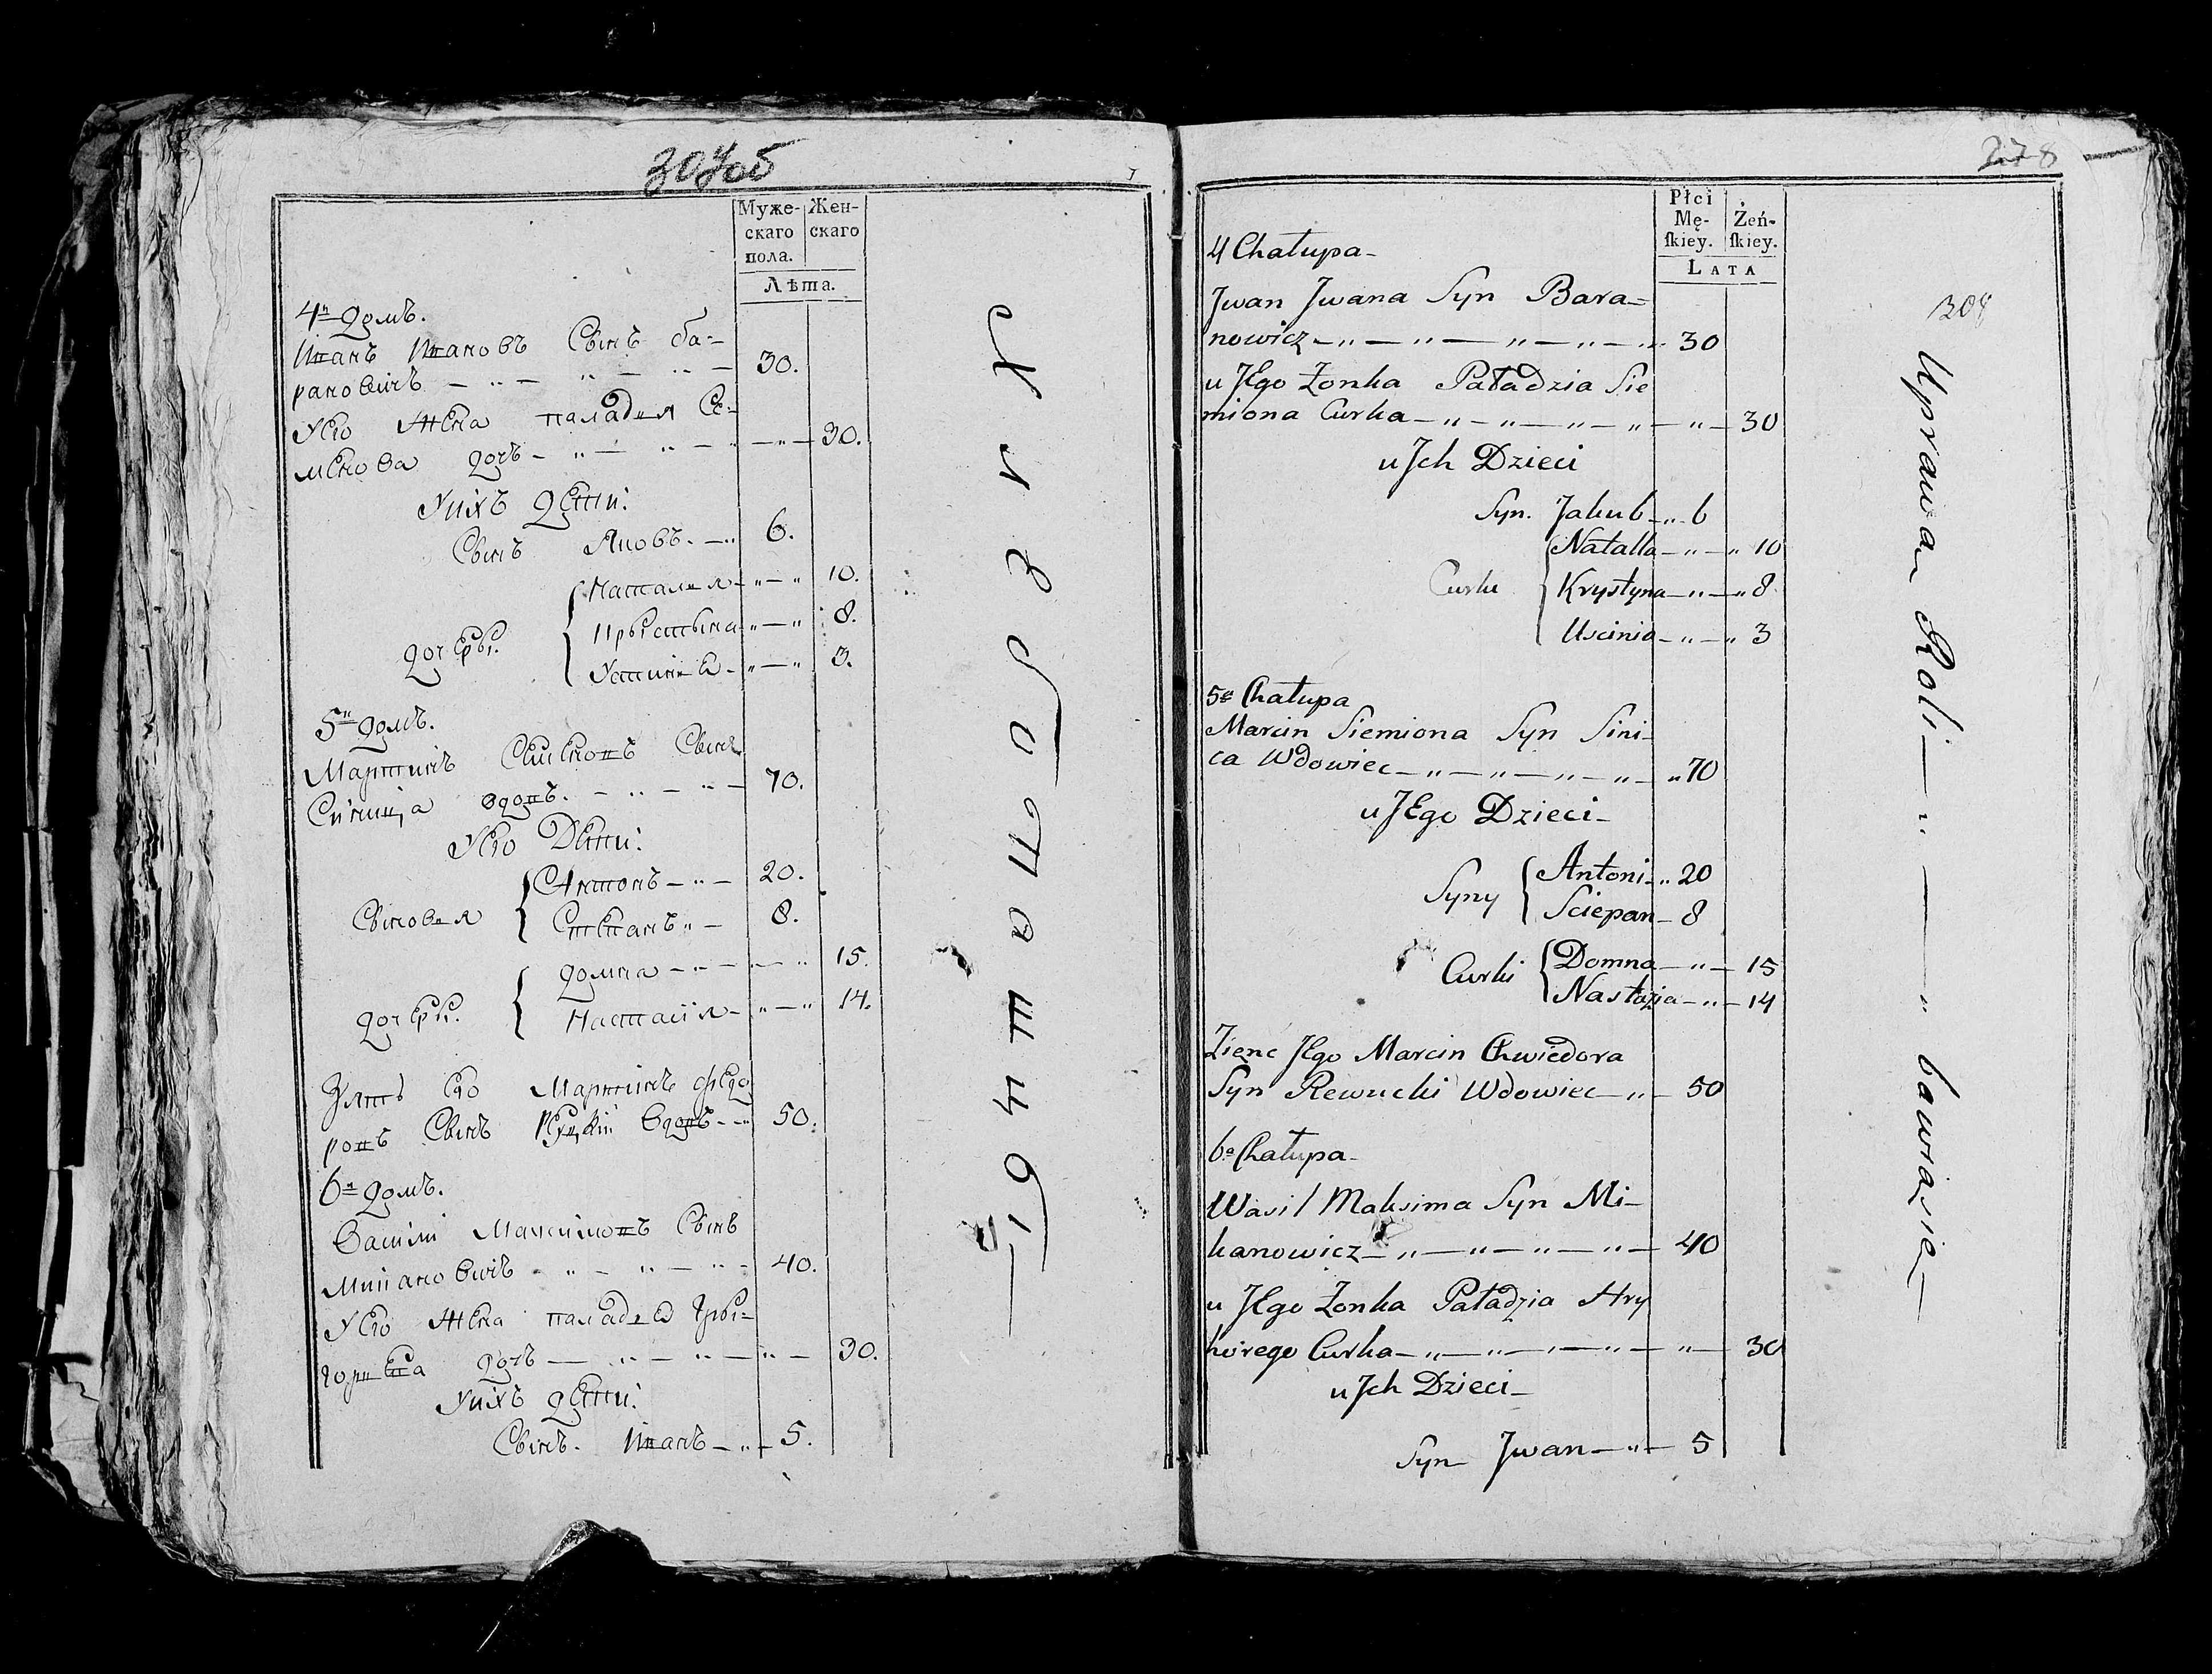 307об
Муже-
скаго
пола.
Жен-
скаго
Лѣта.
4й домъ.
Иванъ Ивановъ Сынъ ба-
рановичъ 30.
У Его Жена паладья Се-
менова дочь 30.
У ихъ дети:
Сынъ Яковъ. 6.
дочеры.
Наталья 10.
Крыстына 8.
Устинья 3.
5й домъ.
Мартинъ Сименовъ Сынъ
Синица вдовъ. 70.
У Его Дети:
Сыновья
Антонъ 20.
Степанъ 8.
дочеры.
домна 15.
Настасія 14.
Зять Его Мартинъ федо
ровъ Сынъ Ревуцкій вдовъ 50.
6й домъ.
Василій Максимовъ Сынъ
Микановичъ 40.
У Его Жена паладья Гры-
горьева дочь 30.
У ихъ дети:
Сынъ. Иванъ 5.
278
Płci
Mę-
ſkiey.
Żeń-
ſkiey.
LATA
308
4 Chałupa
Jwan Jwana Syn Bara-
nowicz 30
u Jego Żonka Paładzia Sie
miona Curka 30
u Jch Dzieci
Syn. Jakub 6
Curki
Natalla 10
Krystyna 8
Uscinia 3
5a Chałupa
Marcin Siemiona Syn Sini-
ca Wdowiec 70
u JEgo Dzieci
Syny
Antoni 20
Sciepan 8
Curki
Domna 15
Nastazia 14
Zienć Jego Marcin Chwiedora
Syn Rewucki Wdowiec 50
6a Chałupa
Wasil Maksima Syn Mi-
kanowicz 40
u JEgo Żonka Paładzia Hry
horego Curka 30
u Jch Dzieci
Syn Jwan 5
Uprawaą Roli bawiąsie